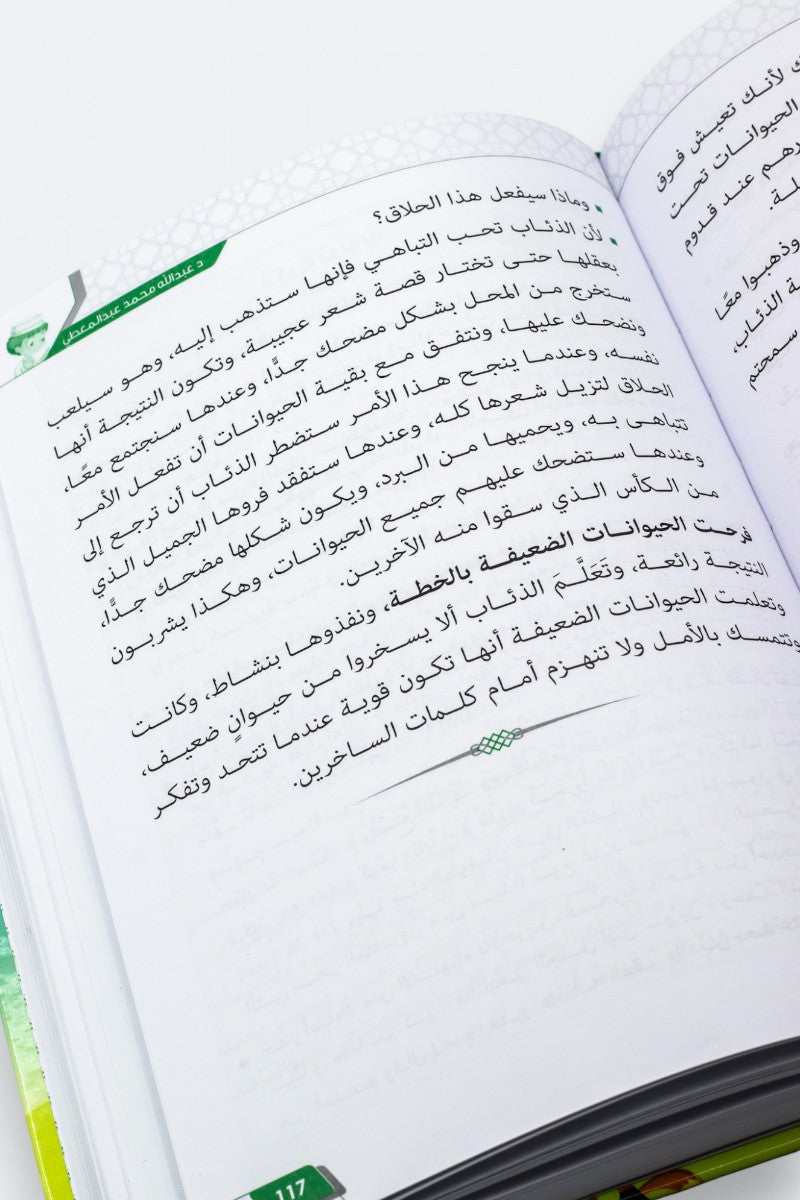 د عبدالله محمد عبدالمعطي
وماذا سيفعل هذا الحلاق؟
لأن الذئاب تحب التباهي فإنها ستذهب إليه، وهو سيلعب
بعقلها حتى تختار قصة شعر عجيبة، وتكون النتيجة أنها
ستخرج من المحل بشكل مضحك جدًّا، وعندها سنجتمع معًا،
ونضحك عليها، ونتفق مع بقية الحيوانات أن تفعل الأمر
نفسه، وعندما ينجح هذا الأمر ستضطر الذئاب أن ترجع إلى
الحلاق لتزيل شعرها كله، وعندها ستفقد فروها الجميل الذي
تتباهى به، ويحميها من البرد، ويكون شكلها مضحك جدًّا،
وعندها ستضحك عليهم جميع الحيوانات، وهكذا يشربون
من الكأس الذي سقوا منه الآخرين.
فرحت الحيوانات الضعيفة بالخطة، ونفذوها بنشاط، وكانت
النتيجة رائعة، وتَعَلَّمَ الذئاب ألا يسخروا من حيوانٍ ضعيف،
وتعلمت الحيوانات الضعيفة أنها تكون قوية عندما تتحد وتفكر
وتتمسك بالأمل ولا تنهزم أمام كلمات الساخرين.
117
لأنك تعيش فوق
الحيوانات تحت
عند قدوم
وذهبوا معًا
الذئاب،
سمحتم